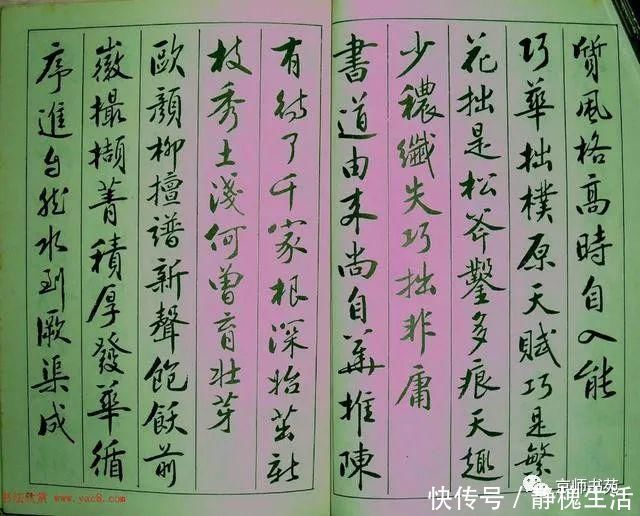 質風格高時自入能
巧華拙樸原天賦巧是繁
花拙是松斧鑿多痕天趣
少穠纖失巧拙非庸
書道由来尚自華推陳
有待了千家根深始茁新
枝秀土淺何曾育壯芽
歐顏柳擅譜新聲飽飫前
徽撮擷菁積厚發華循
序進自然水到厥渠成
书法欣赏 www.yac8.com
京师书苑
快传号 / 静槐生活